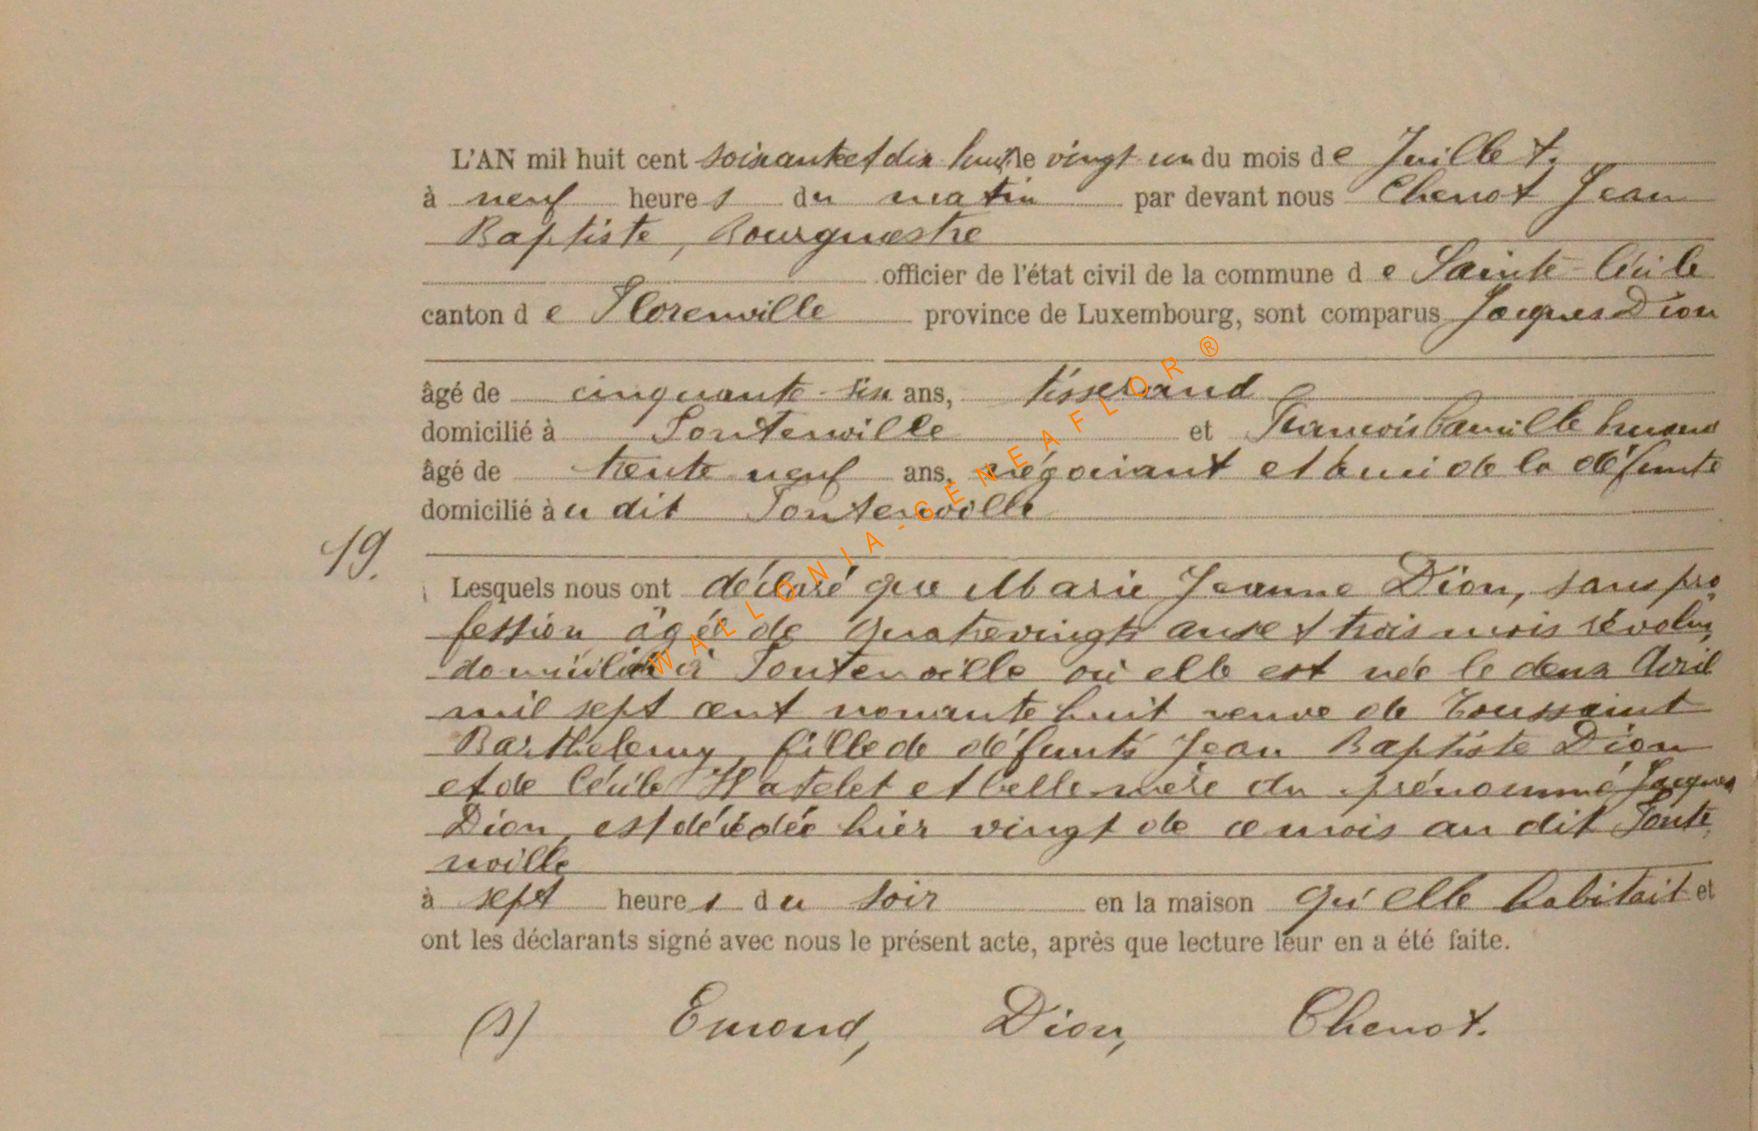 L'AN mil huit cent soixante et dix huit, le vingt un du mois de Juillet.
à neuf heures du matin par devant nous Chenot Jean
Baptiste, Bourgmestre
officier de l'état civil de la commune de Sainte-Cécile
canton de Florenville province de Luxembourg, sont comparus Jacques Dion
âgé de cinquante-six ans, tisserand
domicilié à Fontenoille et François Camille
âgé de trente neuf ans, négociant et ami de la défunte
domicilié àu dit Fontenoille
19.
Lesquels nous ont déclaré que Marie Jeanne Dion, sans pro
fession âgée de quatrevingts ans et trois mois révolus,
domiciliée à Fontenoille où elle est née le deux Avril
mil sept cent nonante huit veuve de Toussaint
Barthelemy, fille de défunts Jean Baptiste Dion
et de Cécile Hatelet et belle-mère du prénommé Jacques
Dion, est décédée hier vingt de ce mois au dit Fonte
noille
à sept heures du soir en la maison qu'elle habitait et
ont les déclarants signé avec nous le présent acte, après que lecture leur en a été faite.
(s) Emond, Dion, Chenot.
WALLONIA-GENEAFLOR®